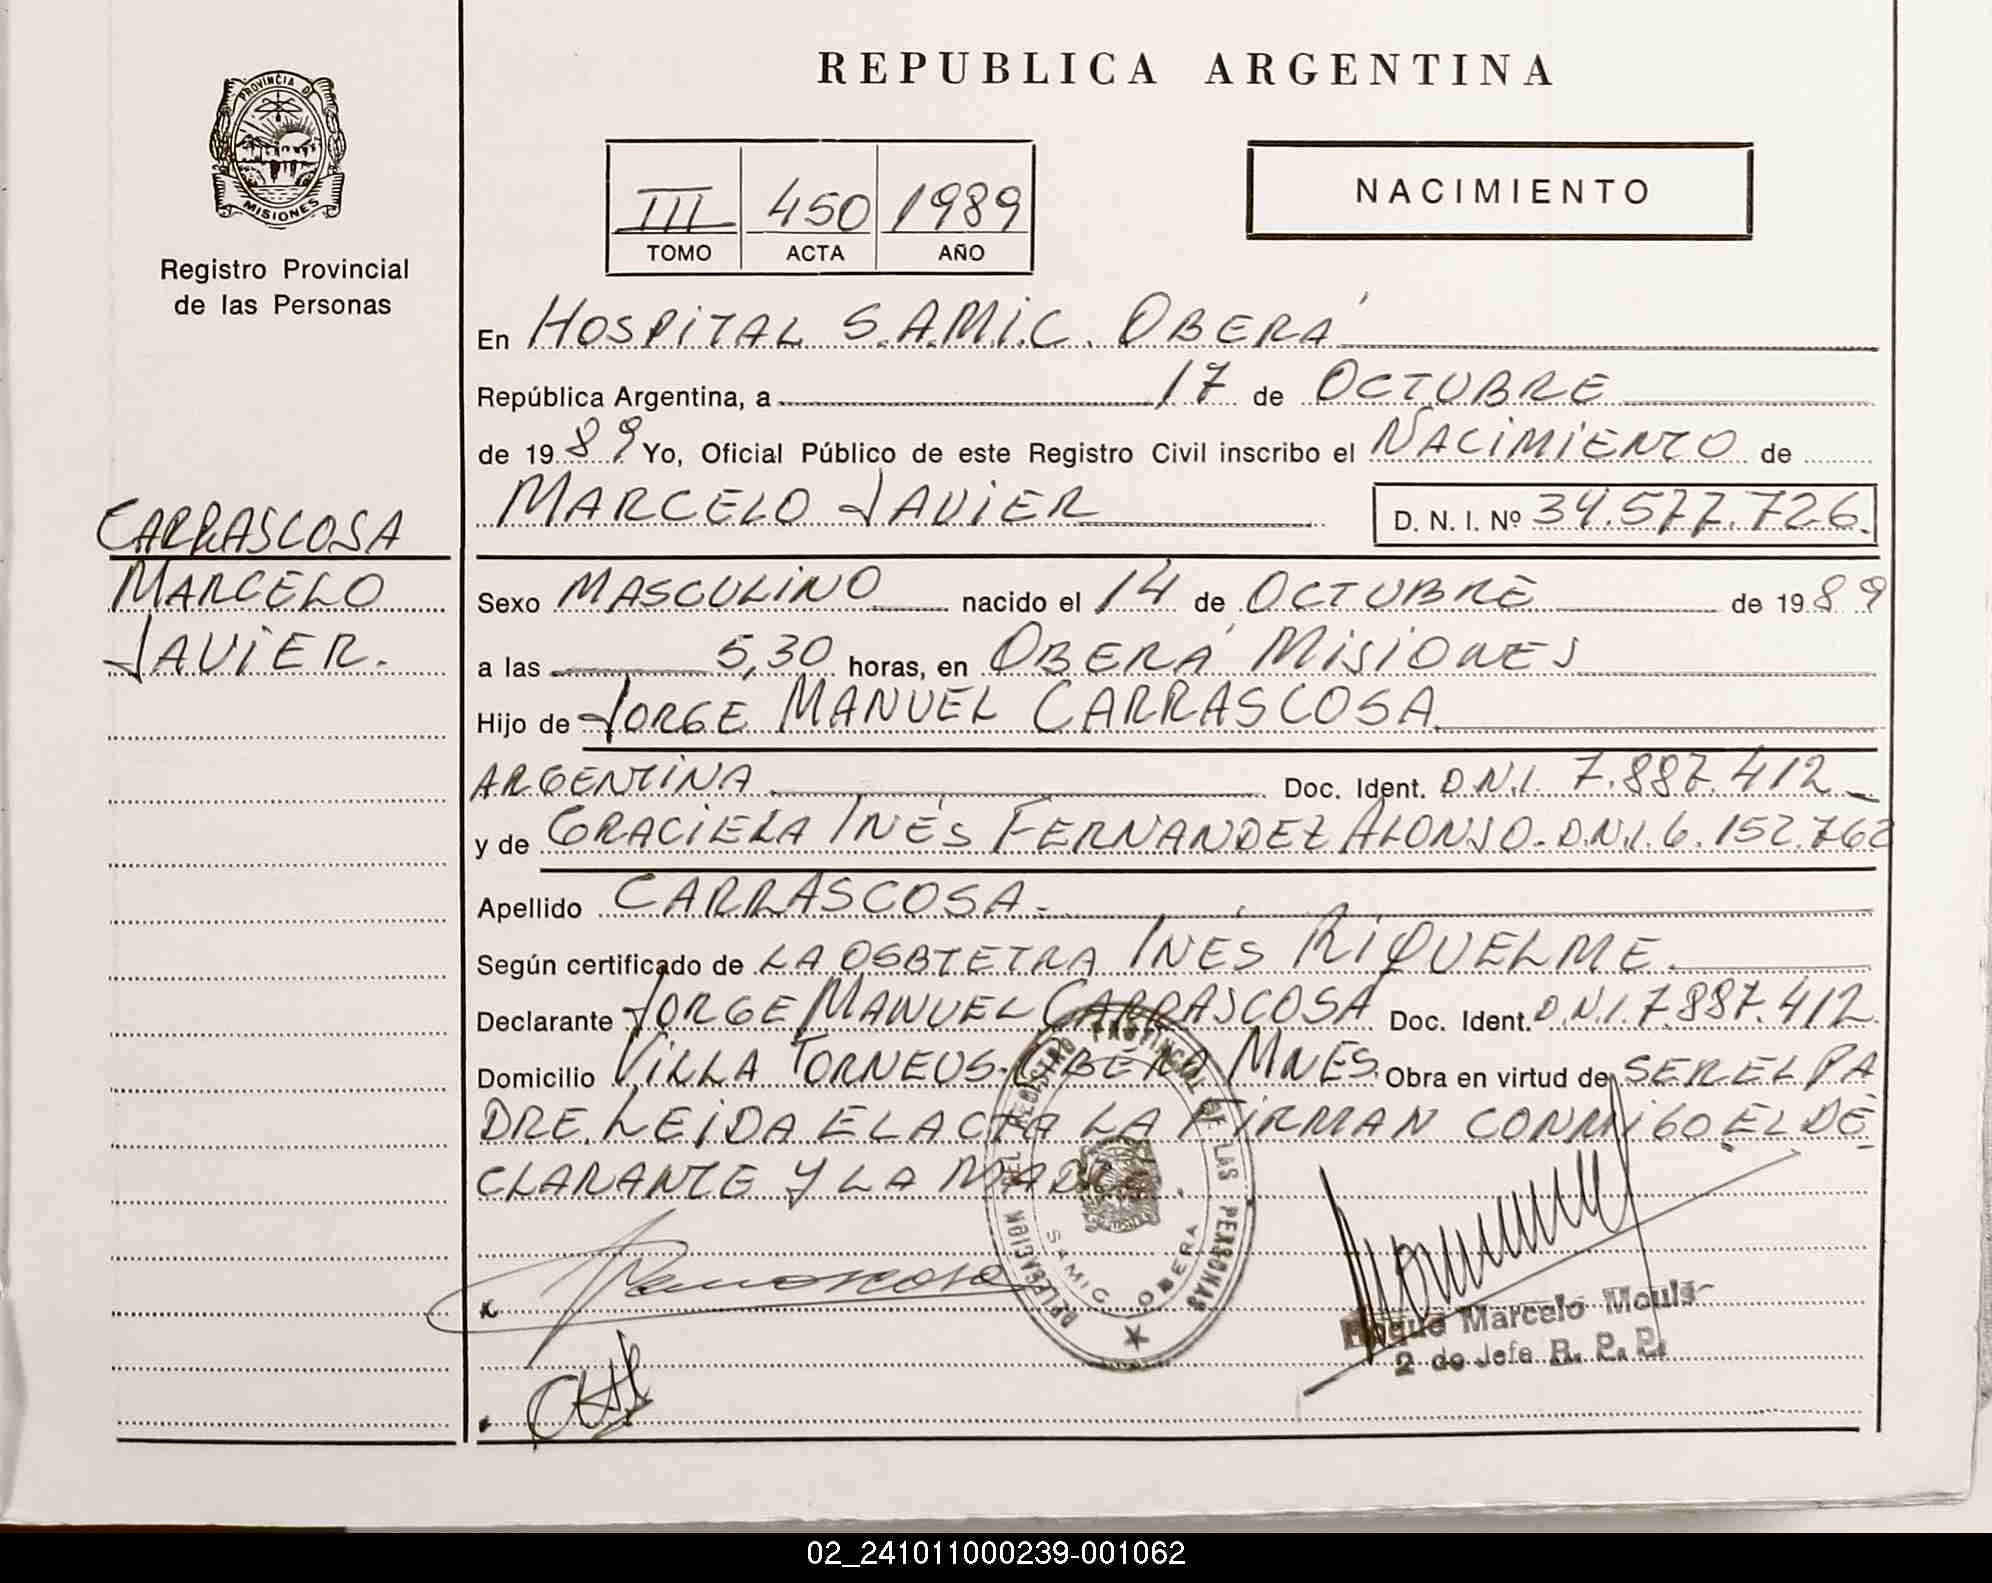 PROVINCIA DE
MISIONES
Registro Provincial
de las Personas
REPUBLICA ARGENTINA
III 450 1989
TOMO ACTA AÑO
NACIMIENTO
En HOSPITAL S.A.M.I.C. OBERÁ
República Argentina, a 17 de OCTUBRE
de 1989 Yo, Oficial Público de este Registro Civil inscribo el NACIMIENTO de
MARCELO JAVIER D. N. I. Nº 34.577.726.
CARRASCOSA
MARCELO
JAVIER.
Sexo MASCULINO nacido el 14 de OCTUBRE de 1989
a las 5,30 horas, en OBERÁ MISIONES
Hijo de JORGE MANUEL CARRASCOSA
ARGENTINA Doc. Ident. D.N.I. 7.887.412
y de GRACIELA INÉS FERNANDEZ ALONSO. D.N.I. 6.152.762
Apellido CARRASCOSA.
Según certificado de LA OSBTETRA INES RIQUELME.
Declarante JORGE MANUEL CARRASCOSA Doc. Ident. D.N.I. 7.887.412
Domicilio VILLA TORNEUS. OBERA MNES. Obra en virtud de SER EL PA
DRE. LEIDA EL ACTA LA FIRMAN CONMIGO EL DE
CLARANTE Y LA MADRE.
DEL REGISTRO PROVINCIAL DE LAS PERSONAS
SAMIC OBERA
Marcelo
2 do Jefe R. P. P.
02_241011000239-001062